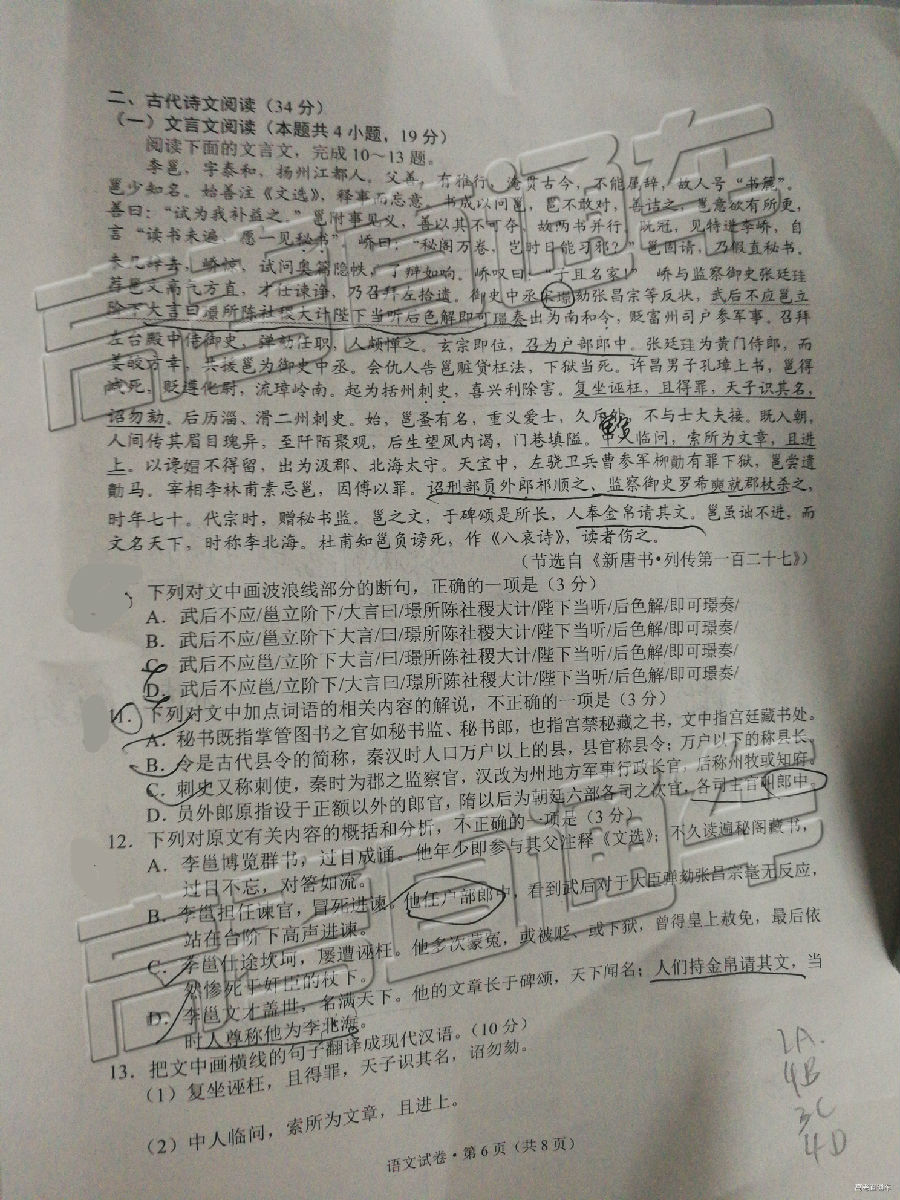 二、古代诗文阅读（34分）
（一）文言文阅读（本题共4小题，19分）
阅读下面的文言文，完成10～13题。
李邕，字泰和，扬州江都人。父善，有雅行，淹贯古今，不能属辞，故人号“书簏”。
邕少知名。始善注《文选》，释事而忘意。书成以问邕，邕不敢对，善诘之，邕意欲有所更，
善曰：“试为我补益之。”邕附事见义，善以其不可夺，故两书并行。既冠，见特进李峤，自
言“读书未遍，愿一见秘书”。峤曰：“秘阁万卷，岂时日能习邪？”邕固请，乃假直秘书。
未几辞去，峤惊，试问奥篇隐帙，了辩如响，峤叹曰：“子且名家！”峤与监察御史张廷珪
荐邕文高气方直，才任谏诤，乃召拜左拾遗。御史中丞宋璟劾张昌宗等反状，武后不应邕立
阶下大言曰璟所陈社稷大计陛下当听后色解即可璟奏出为南和令，贬富州司户参军事。召拜
左台殿中侍御史，弹劾任职，人颇惮之。玄宗即位，召为户部郎中。张廷珪为黄门侍郎，而
姜皎方幸，共援邕为御史中丞。会仇人告邕赃贷枉法，下狱当死。许昌男子孔璋上书，邕得
减死，贬遵化尉，流璋岭南。起为括州刺史，喜兴利除害。复坐诬枉，且得罪，天子识其名，
诏勿劾。后历淄、滑二州刺史。始，邕蚤有名，重义爱士，久斥外，不与士大夫接。既入朝，
人间传其眉目瑰异，至阡陌聚观，后生望风内谒，门巷填隘。中人临问，索所为文章，且进
上。以谗媢不得留，出为汲郡、北海太守。天宝中，左骁卫兵曹参军柳勣有罪下狱，邕尝遗
勣马。宰相李林甫素忌邕，因傅以罪。诏刑部员外郎祁顺之、监察御史罗希奭就郡杖杀之，
时年七十。代宗时，赠秘书监。邕之文，于碑颂是所长，人奉金帛请其文。邕虽诎不进，而
文名天下，时称李北海。杜甫知邕负谤死，作《八哀诗》，读者伤之。
（节选自《新唐书•列传第一百二十七》）
下列对文中画波浪线部分的断句，正确的一项是（3分）
A．武后不应/邕立阶下/大言曰/璟所陈社稷大计/陛下当听/后色解/即可璟奏/
B．武后不应/邕立阶下大言/曰/璟所陈社稷大计/陛下当听/后色解/即可璟奏/
C．武后不应邕/立阶下大言/曰/璟所陈社稷大计/陛下当听/后色解/即可璟奏/
D．武后不应邕/立阶下/大言曰/璟所陈社稷大计/陛下当听/后色解/即可璟奏/
11．下列对文中加点词语的相关内容的解说，不正确的一项是（3分）
A．秘书既指掌管图书之官如秘书监、秘书郎，也指宫禁秘藏之书，文中指宫廷藏书处。
B．令是古代县令的简称，秦汉时人口万户以上的县，县官称县令；万户以下的称县长。
C．刺史又称刺使，秦时为郡之监察官，汉改为州地方军事行政长官，后称州牧或知府。
D．员外郎原指设于正额以外的郎官，隋以后为朝廷六部各司之次官，各司主官叫郎中。
12．下列对原文有关内容的概括和分析，不正确的一项是（3分）
A．李邕博览群书，过目成诵。他年少即参与其父注释《文选》；不久读遍秘阁藏书，
过目不忘，对答如流。
B．李邕担任谏官，冒死进谏。他任户部郎中，看到武后对于大臣弹劾张昌宗毫无反应，
站在台阶下高声进谏。
C．李邕仕途坎坷，屡遭诬枉。他多次蒙冤，或被贬、或下狱，曾得皇上赦免，最后依
然惨死于奸臣的杖下。
D．李邕文才盖世，名满天下。他的文章长于碑颂，天下闻名；人们持金帛请其文，当
时人尊称他为李北海。
13．把文中画横线的句子翻译成现代汉语。（10分）
（1）复坐诬枉，且得罪，天子识其名，诏勿劾。
（2）中人临问，索所为文章，且进上。
1A.
4B
3C
4D
语文试卷•第6页（共8页）
高考直通车